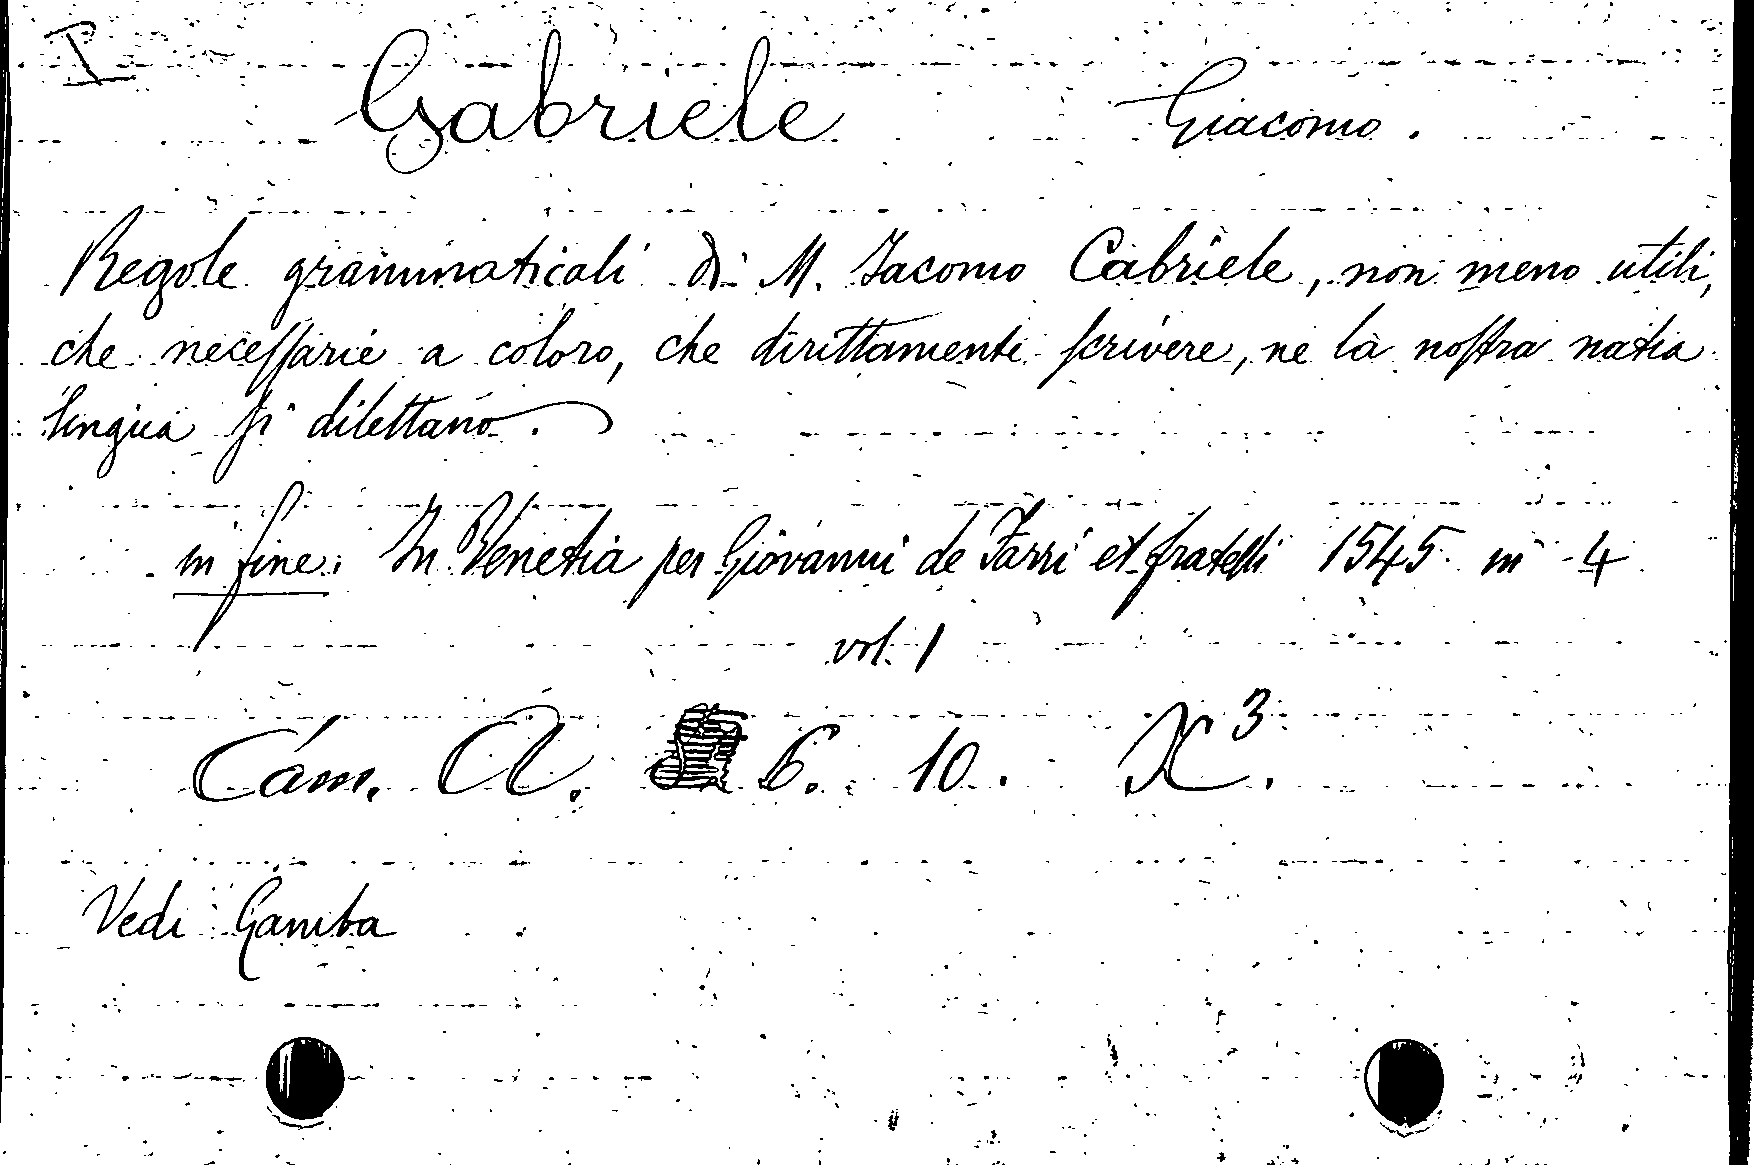 I
Gabriele Giacomo.
Regole grammaticali di M. Iacomo Cabriele, non meno utili,
che neceſſarie a coloro, che dirittamente ſcrivere, ne la noſtra natia
lingua ſi dilettano.
in fine: In Venetia per Giovanni de Farri et fratelli 1545 in 4
vol. 1
Cam. A. 6. 10. X³.
Vedi Gamba